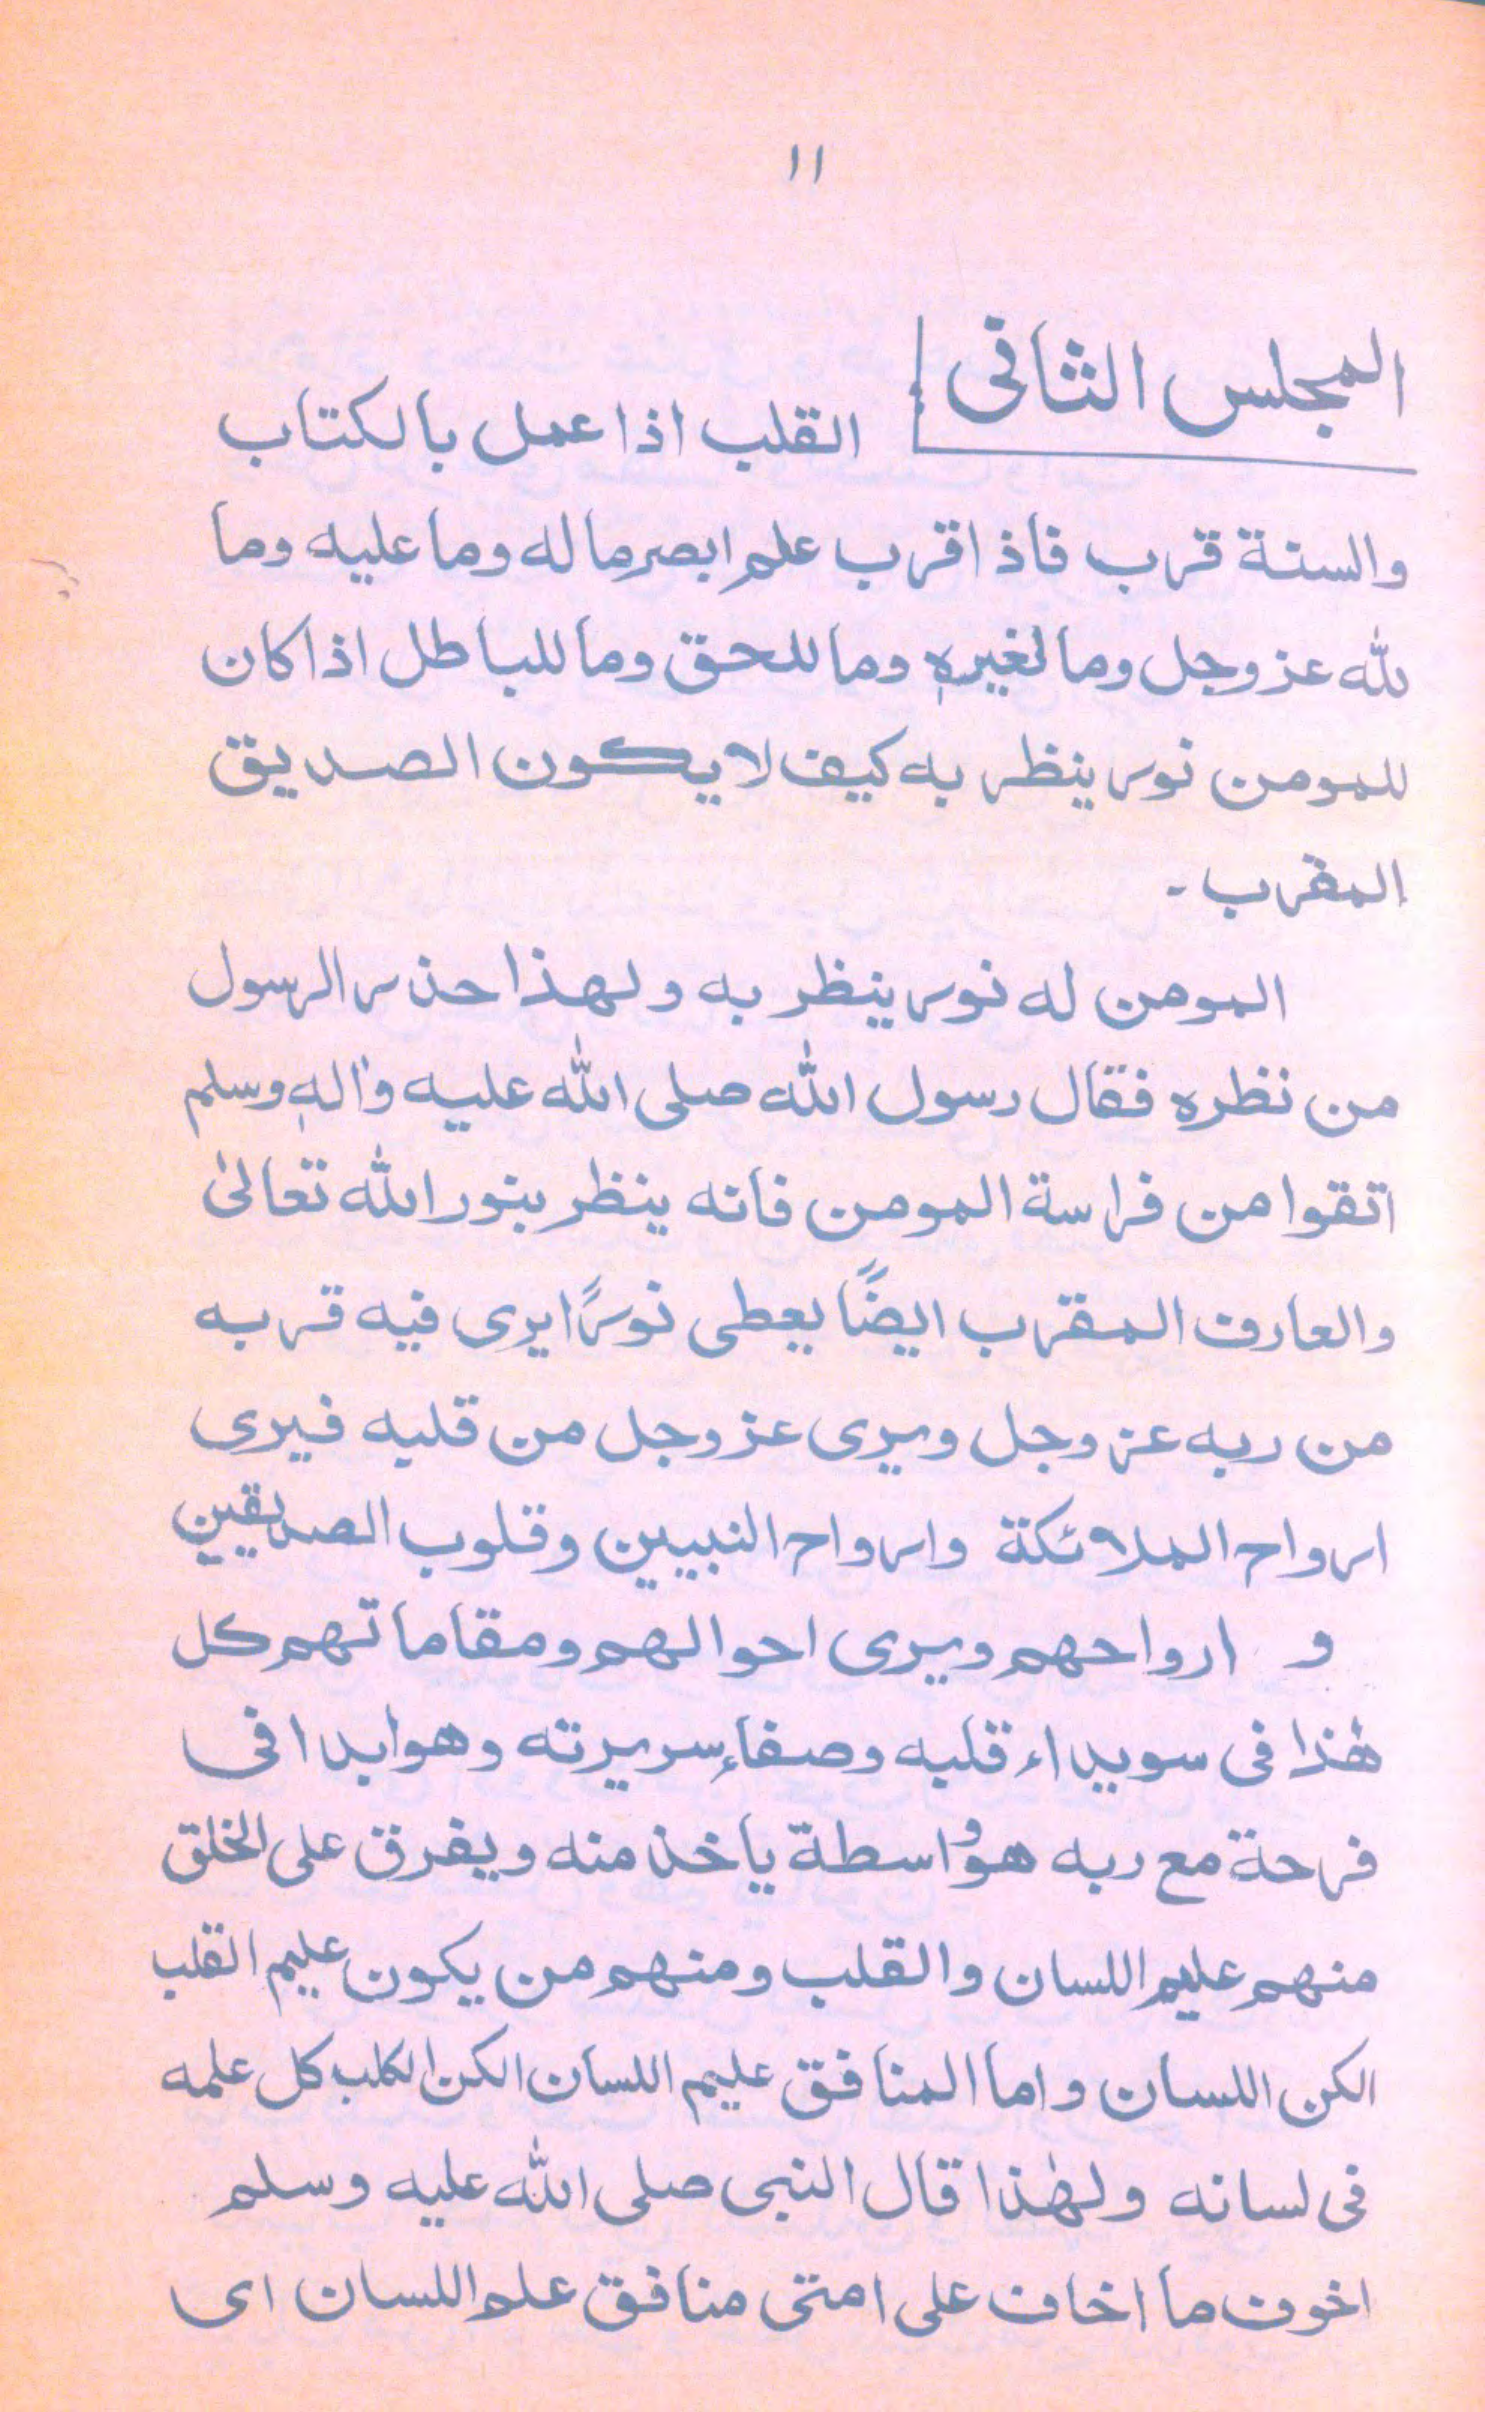 ١١
المجلس الثانی
القلب اذا عمل بالكتاب
والسنة قرب فاذا قرب علم ابصر ما له وما عليه وما
لله عز وجل وما لغيرهٖ وما للحق وما للباطل اذا كان
للمومن نور ينظر به كيف لا يكون الصديق
المقرب -
المومن له نور ينظر به ولهذا حذر الرسول
من نظره فقال رسول الله صلى الله عليه واٰلهٖ وسلم
اتقوا من فراسة المومن فانه ينظر بنور الله تعالىٰ
والعارف المقرب ايضًا يعطى نورًا يرى فيه قربه
من ربه عز وجل ويرى عز وجل من قلبه فيرى
ارواح الملائكة وارواح النبيين وقلوب الصديقين
و ارواحهم ويرى احوالهم ومقاماتهم كل
هٰذا فى سويداء قلبه وصفاء سريرته وهو ابدا فى
فرحة مع ربه هو واسطة ياخذ منه ويفرق على الخلق
منهم عليم اللسان والقلب ومنهم من يكون عليم القلب
الكن اللسان واما المنافق عليم اللسان الكن الكلب كل علمه
فى لسانه ولهٰذا قال النبى صلى الله عليه وسلم
اخوف ما اخاف على امتى منافق علم اللسان اى